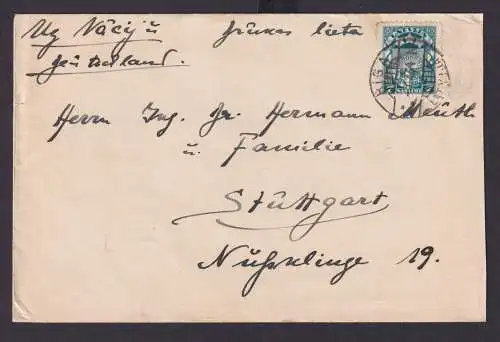 Uz Vāciju
Deutschland.
Drukas lieta
LATVIJA
RIGA
Herrn Ing. Dr. Hermann
u. Familie
Stuttgart
Nußklinge 19.